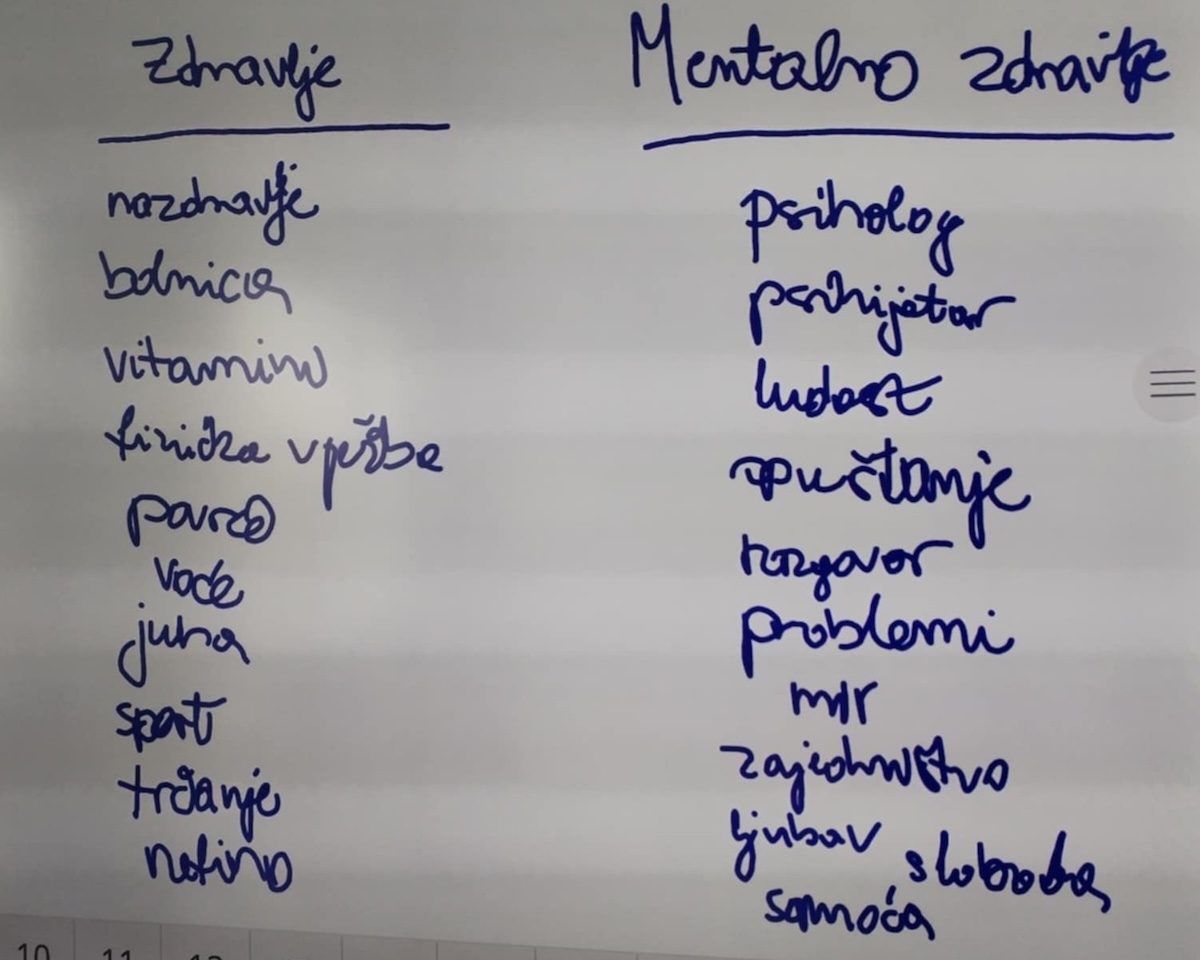 Zdravlje
nazdravlje
bolnica
vitamini
fizička vježba
povrće
voće
juha
sport
trčanje
Mentalno zdravlje
psiholog
psihijatar
ludost
opuštanje
razgovor
problemi
mir
zajedništvo
ljubav sloboda
samoća
10 11 12